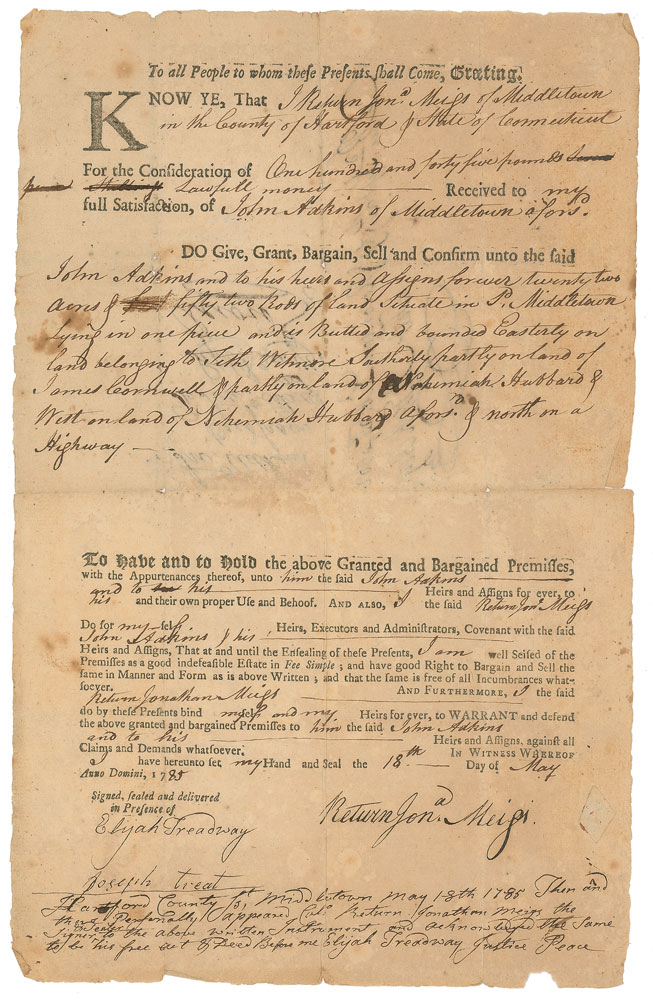 To all People to whom these Presents shall Come, Greeting.
KNOW YE, That I Return Jonᵃ Meigs of Middletown
in the County of Hartford & State of Connecticut
For the Consideration of One hundred and forty five pounds
Lawfull money Received to my
full Satisfaction, of John Adkins of Middletown aforsᵈ
DO Give, Grant, Bargain, Sell and Confirm unto the said
John Adkins and to his heirs and Assigns forever twenty two
Acres & fifty two Rods of land Situate in sᵈ Middletown
Lying in one piece and is Butted and bounded Easterly on
land belonging to Seth Wetmore Southerly partly on land of
James Cornwell & partly on land of Nehemiah Hubbard &
West on land of Nehemiah Hubbard aforsᵈ & north on a
Highway —
To Have and to Hold the above Granted and Bargained Premisses,
with the Appurtenances thereof, unto him the said John Adkins
and to his Heirs and Assigns for ever, to
his and their own proper Use and Behoof. AND ALSO, I the said Return Jonᵃ Meigs
Do for my self Heirs, Executors and Administrators, Covenant with the said
John Adkins & his
Heirs and Assigns, That at and until the Ensealing of these Presents, I am well Seised of the
Premisses as a good indefeasible Estate in Fee Simple; and have good Right to Bargain and Sell the
same in Manner and Form as is above Written; and that the same is free of all Incumbrances what-
soever. AND FURTHERMORE, I the said
Return Jonathan Meigs
do by these Presents bind myself and my Heirs for ever, to WARRANT and defend
the above granted and bargained Premisses to him the said John Adkins
and to his Heirs and Assigns, against all
Claims and Demands whatsoever. IN WITNESS WHEREOF
I have hereunto set my Hand and Seal the 18th Day of May
Anno Domini, 1785
Signed, sealed and delivered
in Presence of
Elijah Treadway Return Jonᵃ Meigs.
Joseph Treat
Hartford County Ss Middletown May 18th 1785 Then and
there Personally appeared Colᵒ Return Jonathan Meigs the
Signer & Sealer to the above written Instrument and acknowledged the Same
to be his free act & Deed Before me Elijah Treadway Justice Peace